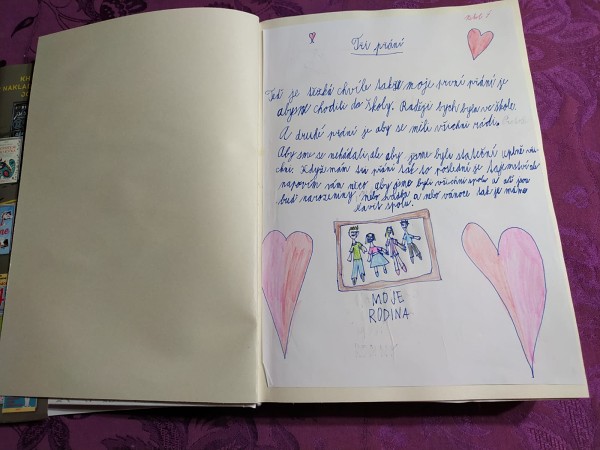 Tři přání
Teď je těžká chvíle takže moje první přání je
abysme chodili do školy. Raději bych byla ve škole.
A druhé přání je aby se měli všichni rádi.
Aby sme se nehádali, ale aby jsme byli statební úplně vši-
chni. Když mám tři přání tak to poslední je tajemství ale
napovím vám něco aby jsme byli všichni spolu ať už jsou
buď narozeniny nebo svátek a nebo vánoce tak je máme
slavit spolu.
MOJE
RODINA
KN
NAKLAD